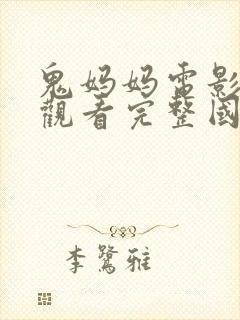 鬼妈妈电影
觀看完整國
李鷺雅